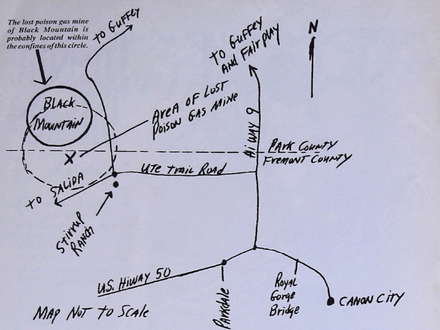 The lost poison gas mine
of Black Mountain is
probably located within
the confines of this circle.
TO GUFFEY
TO GUFFEY
AND FAIRPLAY
N
BLACK
MOUNTAIN
AREA OF LOST
POISON GAS MINE
HiWAY 9
X
PARK COUNTY
FREMONT COUNTY
UTE TRAIL ROAD
TO SALIDA
STIRRUP
RANCH
U.S. HIWAY 50
PARKDALE
ROYAL
GORGE
BRIDGE
CANON CITY
MAP NOT TO SCALE